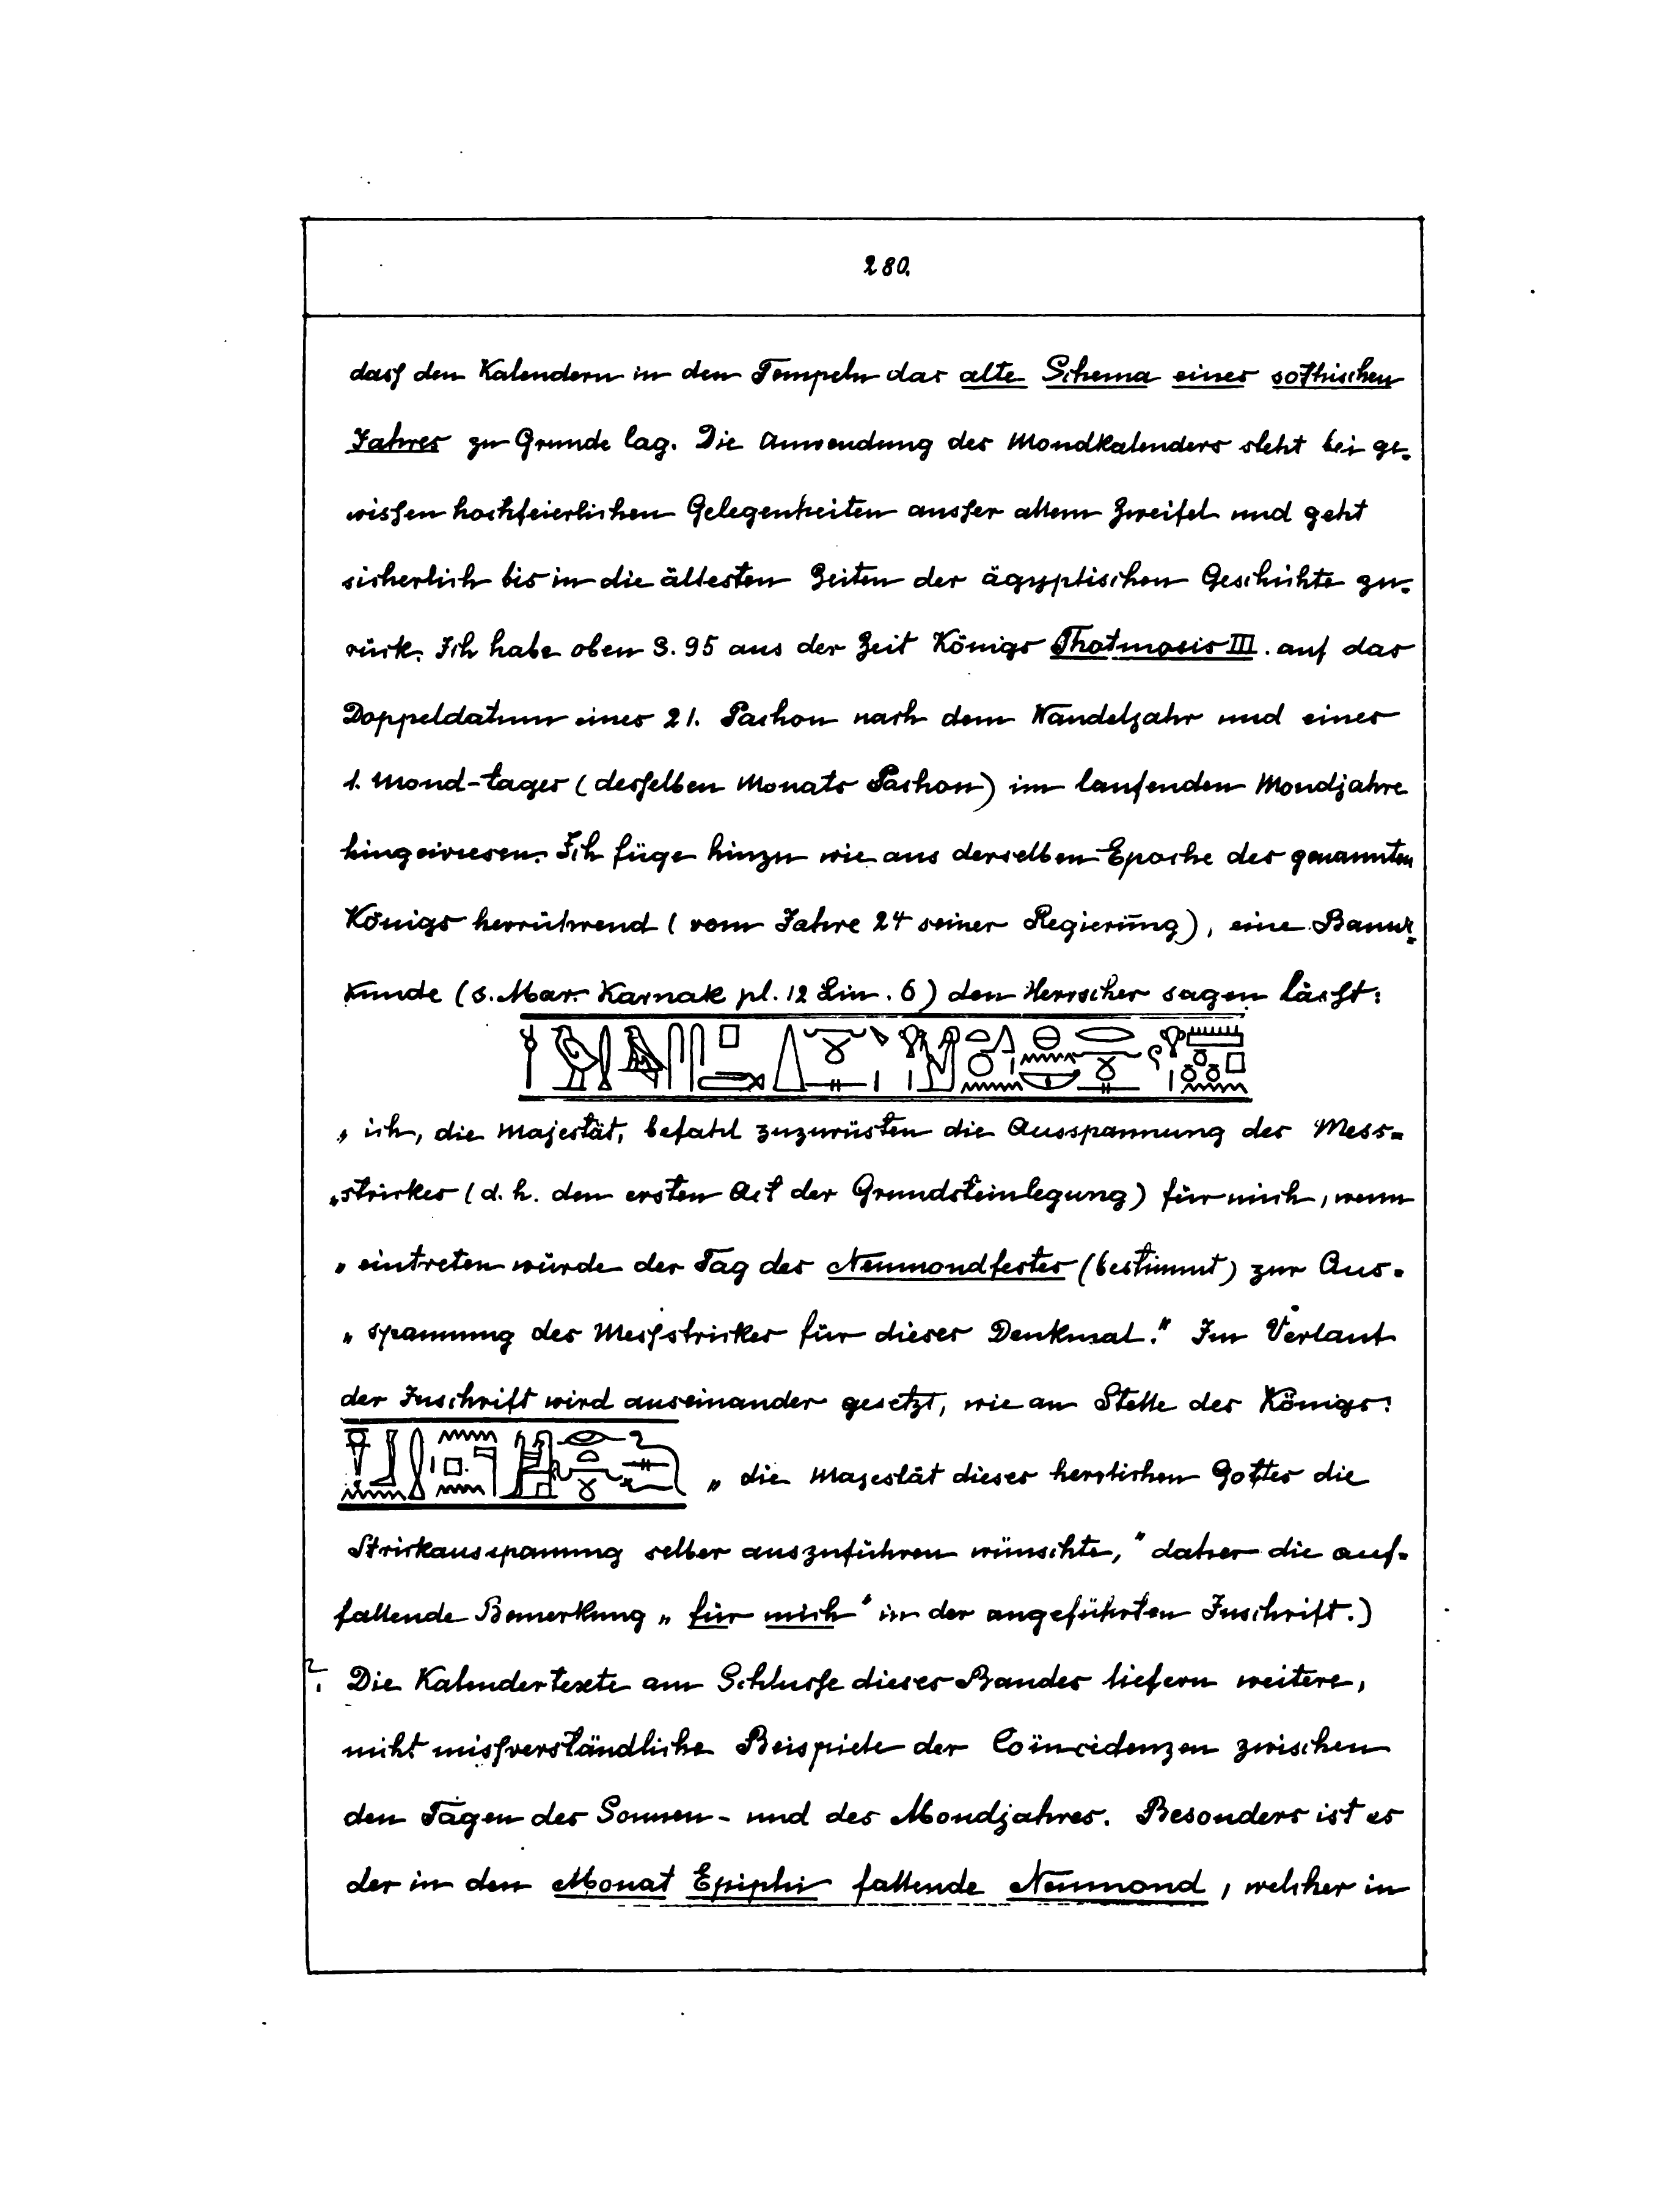 280.
daſs den Kalendern in den Tempeln das alte Schema eines sothischen
Jahres zu Grunde lag. Die Anwendung des Mondkalenders steht bei ge-
wiſsen hochfeierlichen Gelegenheiten auſser allem Zweifel und geht
sicherlich bis in die ältesten Zeiten der ägyptischen Geschichte zu-
rück. Ich habe oben S. 95 aus der Zeit Königs Thotmosis III. auf das
Doppeldatum eines 21. Pachon nach dem Wandeljahr und eines
1. Mond-tages (desſelben Monats Pachon) im laufenden Mondjahre
hingewiesen. Ich füge hinzu wie aus derselben Epoche des genannten
Königs herrührend (vom Jahre 24 seiner Regierung), eine Bauur-
kunde (s. Mar. Karnak pl. 12 Lin. 6) den Herrscher sagen läſst:
„ ich, die Majestät, befahl zuzurüsten die Ausspannung des Mess-
„strickes (d. h. den ersten Act der Grundsteinlegung) für mich, wenn
„ eintreten würde der Tag des Neumondfestes (bestimmt) zur Aus-
„ spannung des Meſsstrickes für dieses Denkmal." Im Verlauf
der Inschrift wird auseinander gesetzt, wie an Stelle des Königs:
„ die Majestät dieses herrlichen Gottes die
Strickausspannung selber auszuführen wünschte," daher die auf-
fallende Bemerkung „ für mich " in der angeführten Inschrift.)
Die Kalendertexte am Schluſse dieses Bandes liefern weitere,
nicht miſsverständliche Beispiele der Coïncidenzen zwischen
den Tagen des Sonnen- und des Mondjahres. Besonders ist es
der in den Monat Epiphi fallende Neumond, welcher in